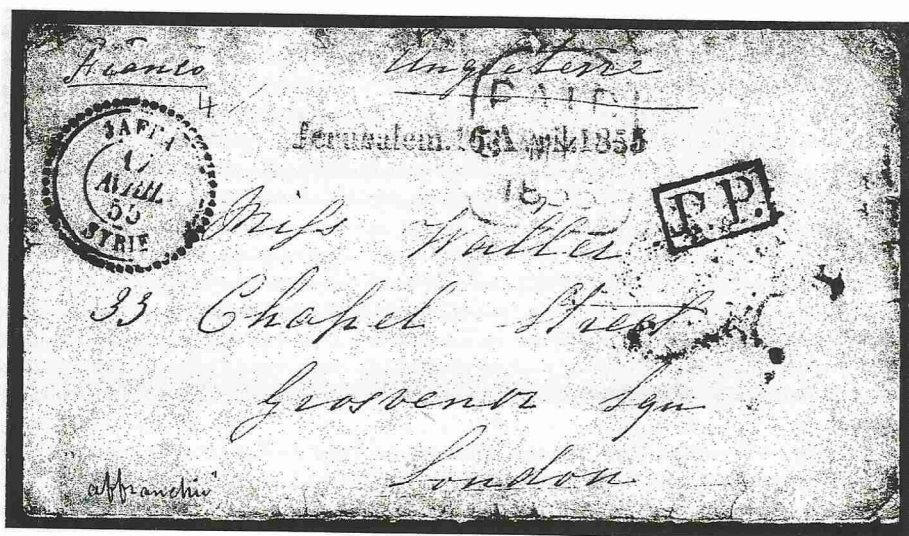 Franco Angleterre
4/
PAID
Jerusalem. 16 April. 1855
JAFFA
17
AVRIL
55
SYRIE
P.P.
Miss Walter
33 Chapel Street
Grosvenor Squ
London
"affranchie"